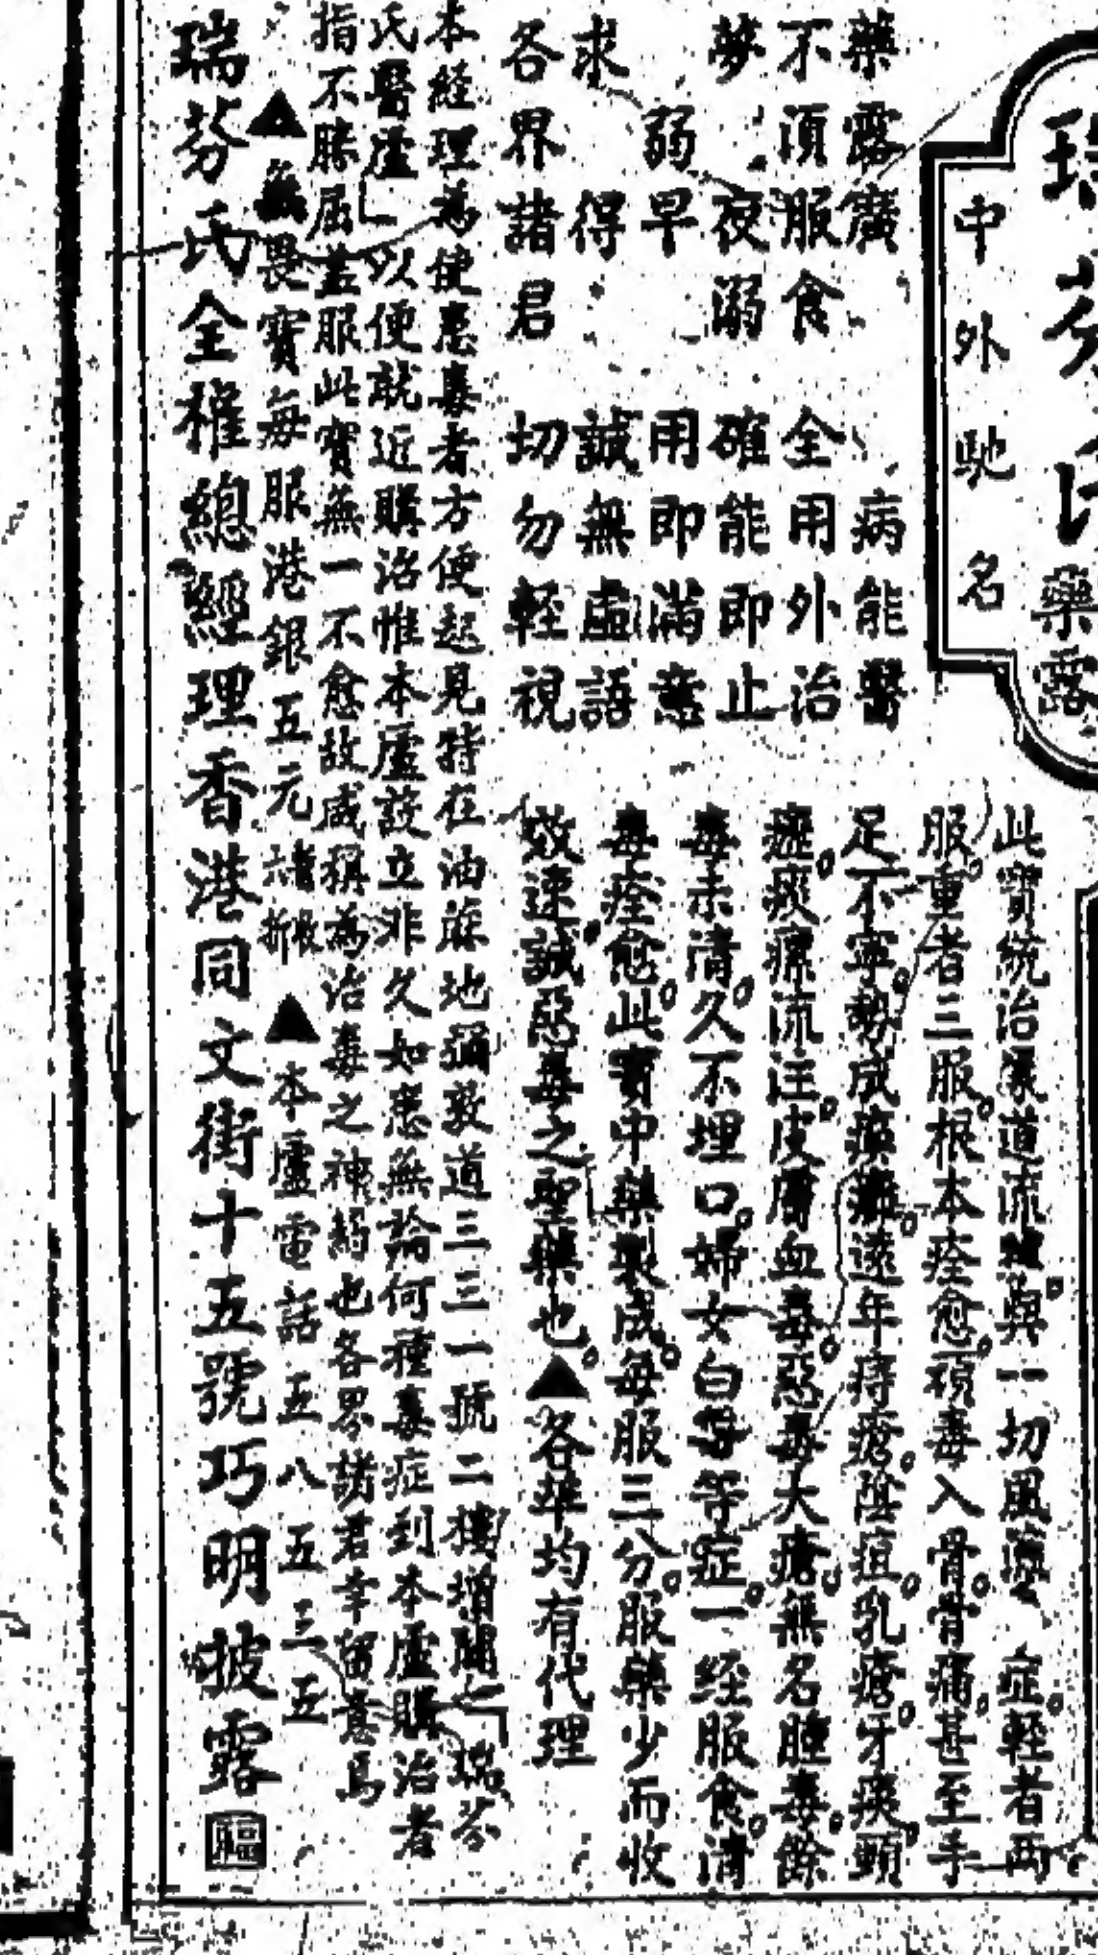 瑞芬氏藥露
中外馳名
藥露廣 病能醫
不須服食 全用外治
夢 夜溺 確能即止
弱早 用即滿意
求 得 誠無虛語
各界諸君 切勿輕視
此寶統治 道流 與一切風 症。輕者兩
服。重者三服。根本痊愈。頑毒入骨。骨骨痛。甚至手
足不寧。勢成瘓癱。遠年痔瘡。陰疽。乳瘡。牙痰。頸
癧。痰瘰流注。皮膚血毒。惡毒大瘡。無名腫毒。餘
毒未清。久不埋口。婦女白 等症。一經服食。清
毒痊愈。此寶中藥製成。每服三分。服藥少而收
效速。誠惡毒之聖藥也。▲各埠均有代理
本經理為使患毒者方便起見特在油蔴地彌敦道三三一號二樓增開「瑞芬
氏醫廬」以便就近購治惟本廬設立非久如患無論何種毒症到本廬購治者
指不勝屈蓋服此寶無一不愈故咸稱為治毒之神葯也各界諸君幸留意焉
▲無畏寶每服港銀五元 ▲本廬電話五八五三五
瑞芬氏全權總經理香港同文街十五號巧明披露